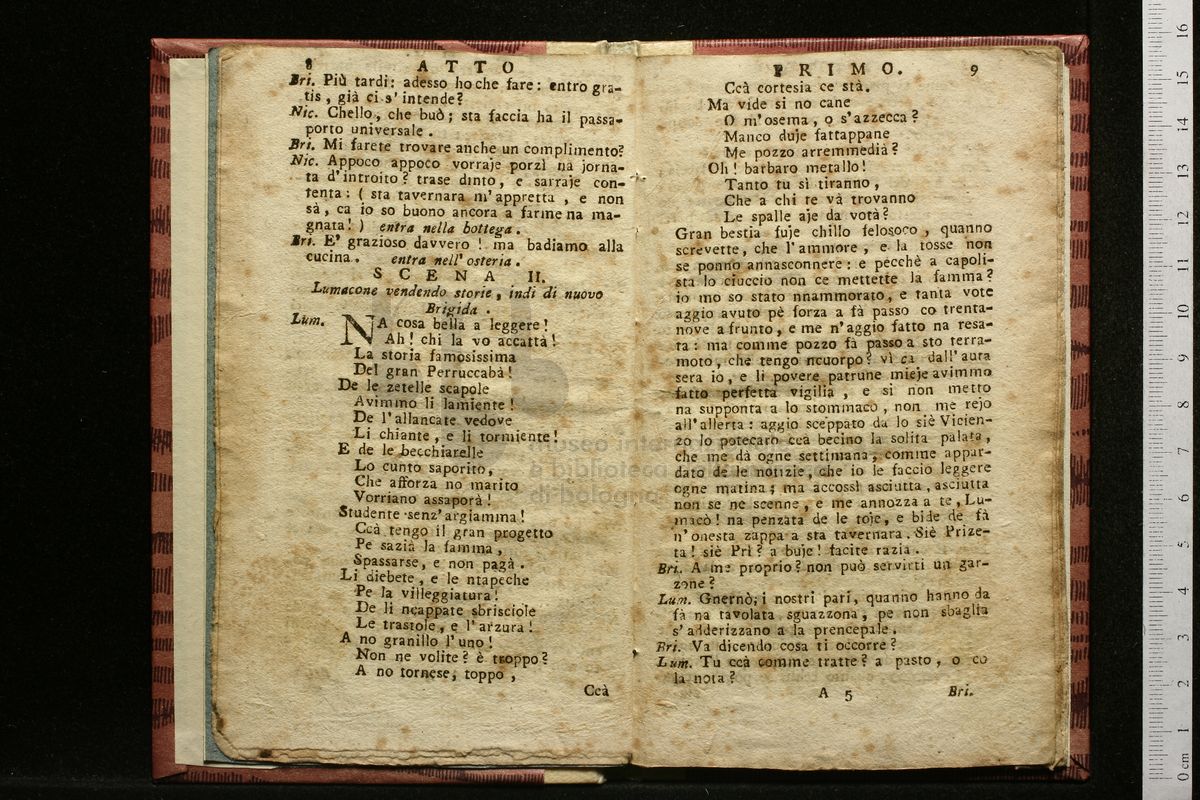 8 ATTO
Bri. Più tardi: adesso ho che fare: entro gra-
tis, già ci s'intende?
Nic. Chello, che buò; sta faccia ha il passa-
porto universale.
Bri. Mi farete trovare anche un complimento?
Nic. Appoco appoco vorraje porzì na jorna-
ta d'introito? trase dinto, e sarraje con-
tenta: ( sta tavernara m'appretta, e non
sà, ca io so buono ancora a farme na ma-
gnata! ) entra nella bottega.
Bri. E' grazioso davvero! ma badiamo alla
cucina. entra nell'osteria.
SCENA II.
Lumacone vendendo storie, indi di nuovo
Brigida.
Lum. NA cosa bella a leggere!
Ah! chi la vo accattà!
La storia famosissima
Del gran Perruccabà!
De le zetelle scapole
Avimmo li lamiente!
De l'allancate vedove
Li chiante, e li tormiente!
E de le becchiarelle
Lo cunto saporito,
Che afforza no marito
Vorriano assaporà!
Studente senz'argiamma!
Ccà tengo il gran progetto
Pe sazià la famma,
Spassarse, e non pagà.
Li diebete, e le ntapeche
Pe la villeggiatura!
De li ncappate sbrisciole
Le trastole, e l'arzura!
A no granillo l'uno!
Non ne volite? è troppo?
A no tornese, toppo,
Ccà
PRIMO. 9
Ccà cortesia ce stà.
Ma vide si no cane
O m'osema, o s'azzecca?
Manco duje fattappane
Me pozzo arremmedià?
Oh! barbaro metallo!
Tanto tu sì tiranno,
Che a chi te và trovanno
Le spalle aje da votà?
Gran bestia fuje chillo felosoco, quanno
screvette, che l'ammore, e la tosse non
se ponno annasconnere: e pecchè a capoli-
sta lo ciuccio non ce mettette la famma?
io mo so stato nnammorato, e tanta vote
aggio avuto pè forza a fà passo co trenta-
nove a frunto, e me n'aggio fatto na resa-
ta: ma comme pozzo fà passo a sto terra-
moto, che tengo ncuorpo? vì ca dall'aura
sera io, e li povere patrune mieje avimmo
fatto perfetta vigilia, e si non metto
na supponta a lo stommaco, non me rejo
all'allerta: aggio sceppato da lo siè Vicien-
zo lo potecaro ccà becino la solita palata,
che me dà ogne settimana, comme appar-
dato de le notizie, che io le faccio leggere
ogne matina; ma accossì asciutta, asciutta
non se ne scenne, e me annozza a te, Lu-
macò! na penzata de le toje, e bide de fà
n'onesta zappa a sta tavernara. Siè Prize-
ta! siè Prì? a buje! facite razia.
Bri. A me proprio? non può servirti un gar-
zone?
Lum. Gnernò; i nostri pari, quanno hanno da
fà na tavolata sguazzona, pe non sbaglià
s'adderizzano a la prencepale.
Bri. Va dicendo cosa ti occorre?
Lum. Tu ccà comme tratte? a pasto, o co
la nota?
A 5 Bri.